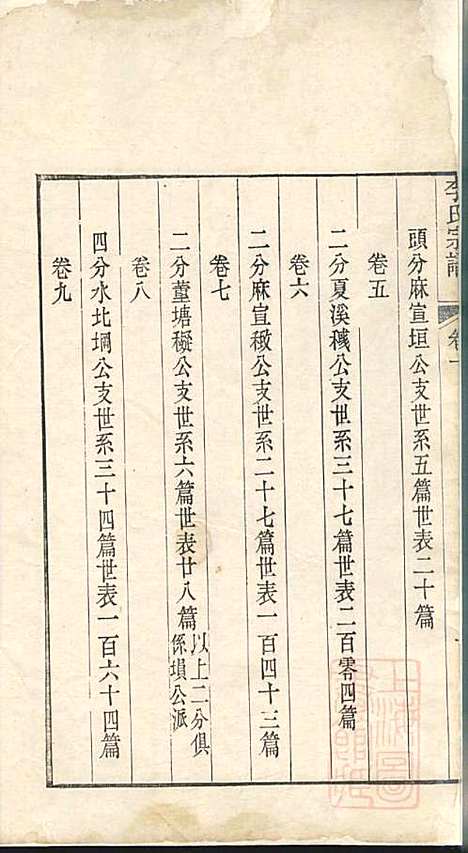 李氏宗譜 卷一
頭分麻宣垣公支世系五篇世表二十篇
卷五
二分夏溪穢公支世系三十七篇世表二百零四篇
卷六
二分麻宣緻公支世系二十七篇世表一百四十三篇
卷七
二分董塘礙公支世系六篇世表廿八篇以上二分俱
係塤公派
卷八
四分水北坰公支世系三十四篇世表一百六十四篇
卷九
上海圖